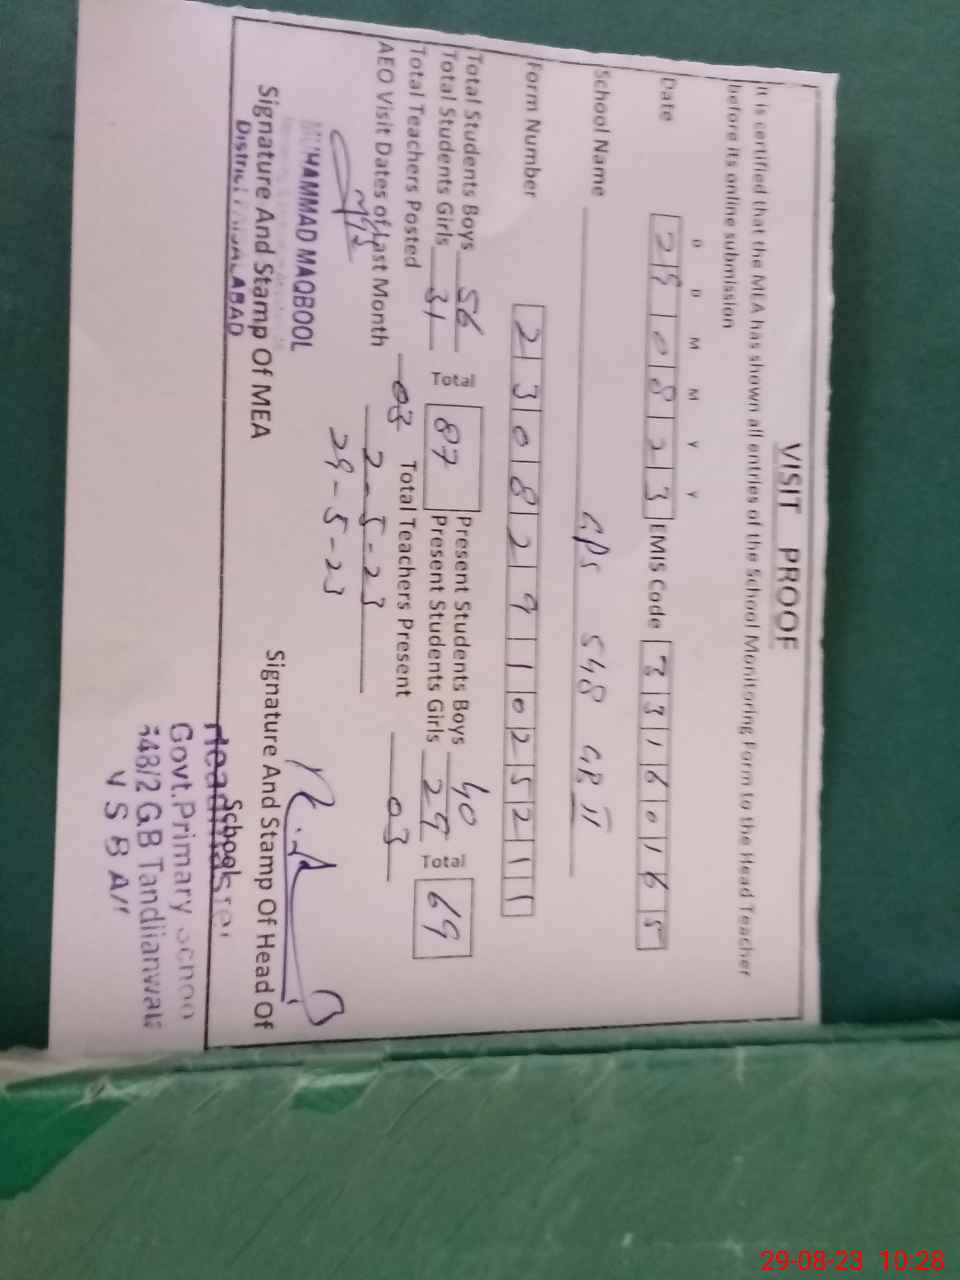 VISIT PROOF
It is certified that the MEA has shown all entries of the School Monitoring Form to the Head Teacher
before its online submission
D D M M Y Y
Date 29 08 23 EMIS Code 33160165
School Name GPS 548 GB II
Form Number 2308291025211
Total Students Boys 56 Total 87 Present Students Boys 40 Total 69
Total Students Girls 31 Present Students Girls 29
Total Teachers Posted 03 Total Teachers Present 03
AEO Visit Dates of Last Month 2-5-23
29-5-23
MUHAMMAD MAQBOOL
Signature And Stamp Of MEA
District FAISALABAD
Signature And Stamp Of Head Of
School
Headmaster
Govt.Primary School
548/2 GB Tandlianwala
29-08-23 10:28